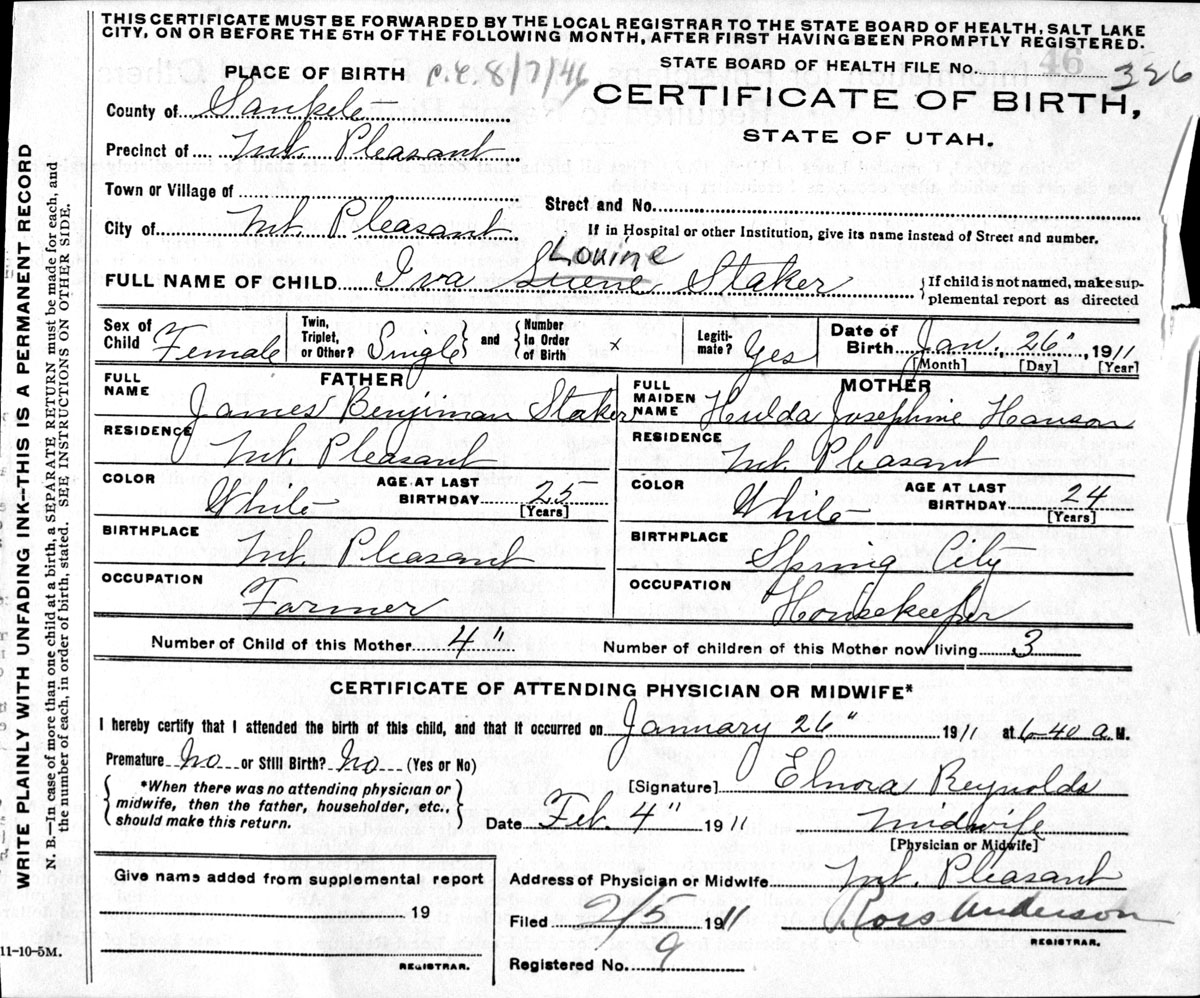 THIS CERTIFICATE MUST BE FORWARDED BY THE LOCAL REGISTRAR TO THE STATE BOARD OF HEALTH, SALT LAKE
CITY, ON OR BEFORE THE 5TH OF THE FOLLOWING MONTH, AFTER FIRST HAVING BEEN PROMPTLY REGISTERED.
PLACE OF BIRTH 8/7/46
STATE BOARD OF HEALTH FILE No. 46 326
CERTIFICATE OF BIRTH,
STATE OF UTAH.
County of Sanpete
Precinct of Mt. Pleasant
Town or Village of
Street and No.
City of Mt. Pleasant
If in Hospital or other Institution, give its name instead of Street and number.
Lovine
FULL NAME OF CHILD Iva Luene Staker
If child is not named, make sup-
plemental report as directed
Sex of Child Female
Twin, Triplet, or Other? Single and Number In Order of Birth x
Legiti-mate? Yes
Date of Birth Jan. 26" 1911
[Month] [Day] [Year]
FATHER
FULL NAME James Benjiman Staker
RESIDENCE Mt. Pleasant
COLOR White AGE AT LAST BIRTHDAY 25
[Years]
BIRTHPLACE Mt. Pleasant
OCCUPATION Farmer
MOTHER
FULL MAIDEN NAME Hulda Josephine Hanson
RESIDENCE Mt. Pleasant
COLOR White AGE AT LAST BIRTHDAY 24
[Years]
BIRTHPLACE Spring City
OCCUPATION Housekeeper
Number of Child of this Mother 4" Number of children of this Mother now living 3
CERTIFICATE OF ATTENDING PHYSICIAN OR MIDWIFE*
I hereby certify that I attended the birth of this child, and that it occurred on January 26" 1911 at 6-40 a.M.
Premature No or Still Birth? No (Yes or No)
*When there was no attending physician or
midwife, then the father, householder, etc.,
should make this return.
[Signature] Elnora Reynolds
Date Feb. 4" 1911 Midwife
[Physician or Midwife]
Give name added from supplemental report
19
REGISTRAR.
Address of Physician or Midwife Mt. Pleasant
Filed 2/5 1911 Anderson
REGISTRAR.
Registered No. 9
11-10-5M.
WRITE PLAINLY WITH UNFADING INK--THIS IS A PERMANENT RECORD
N. B.—In case of more than one child at a birth, a SEPARATE RETURN must be made for each, and
the number of each, in order of birth, stated. SEE INSTRUCTIONS ON OTHER SIDE.